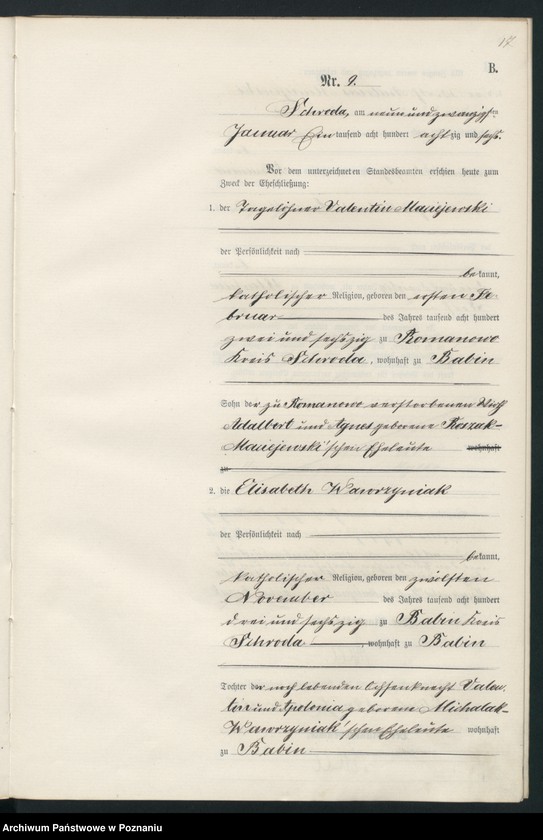 17
B.
Nr. 9.
Schroda, am neun und zwanzigsten
Januar Ein tausend acht hundert achtzig und sechs.
Vor dem unterzeichneten Standesbeamten erschien heute zum
Zweck der Eheschließung:
1. der Tagelöhner Valentin Maciejewski
der Persönlichkeit nach
bekannt,
katholischer Religion, geboren den ersten Fe-
bruar des Jahres tausend acht hundert
zwei und sechszig zu Romanowo
Kreis Schroda, wohnhaft zu Babin
Sohn der zu Romanowo verstorbenen Wirth
Adalbert und Agnes geborene Roszak-
Maciejewski'schen Eheleute wohnhaft
zu
2. die Elisabeth Wawrzyniak
der Persönlichkeit nach
bekannt,
katholischer Religion, geboren den zwölften
November des Jahres tausend acht hundert
drei und sechszig zu Babin Kreis
Schroda, wohnhaft zu Babin
Tochter der noch lebenden Ochsenknecht Valen-
tin und Apolonia geborene Michalak-
Wawrzyniak'schen Eheleute wohnhaft
zu Babin
Archiwum Państwowe w Poznaniu